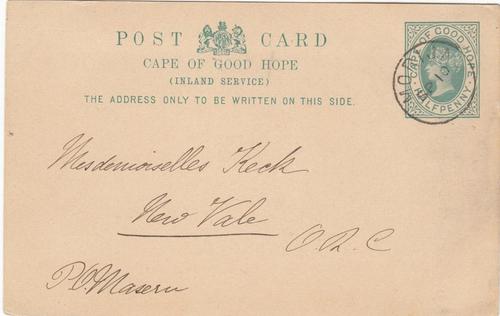 POST CARD
CAPE OF GOOD HOPE
(INLAND SERVICE)
THE ADDRESS ONLY TO BE WRITTEN ON THIS SIDE.
CAPE OF GOOD HOPE
HALFPENNY
Mesdemoiselles Keck
New Vale
O.R.C
P.O. Maseru